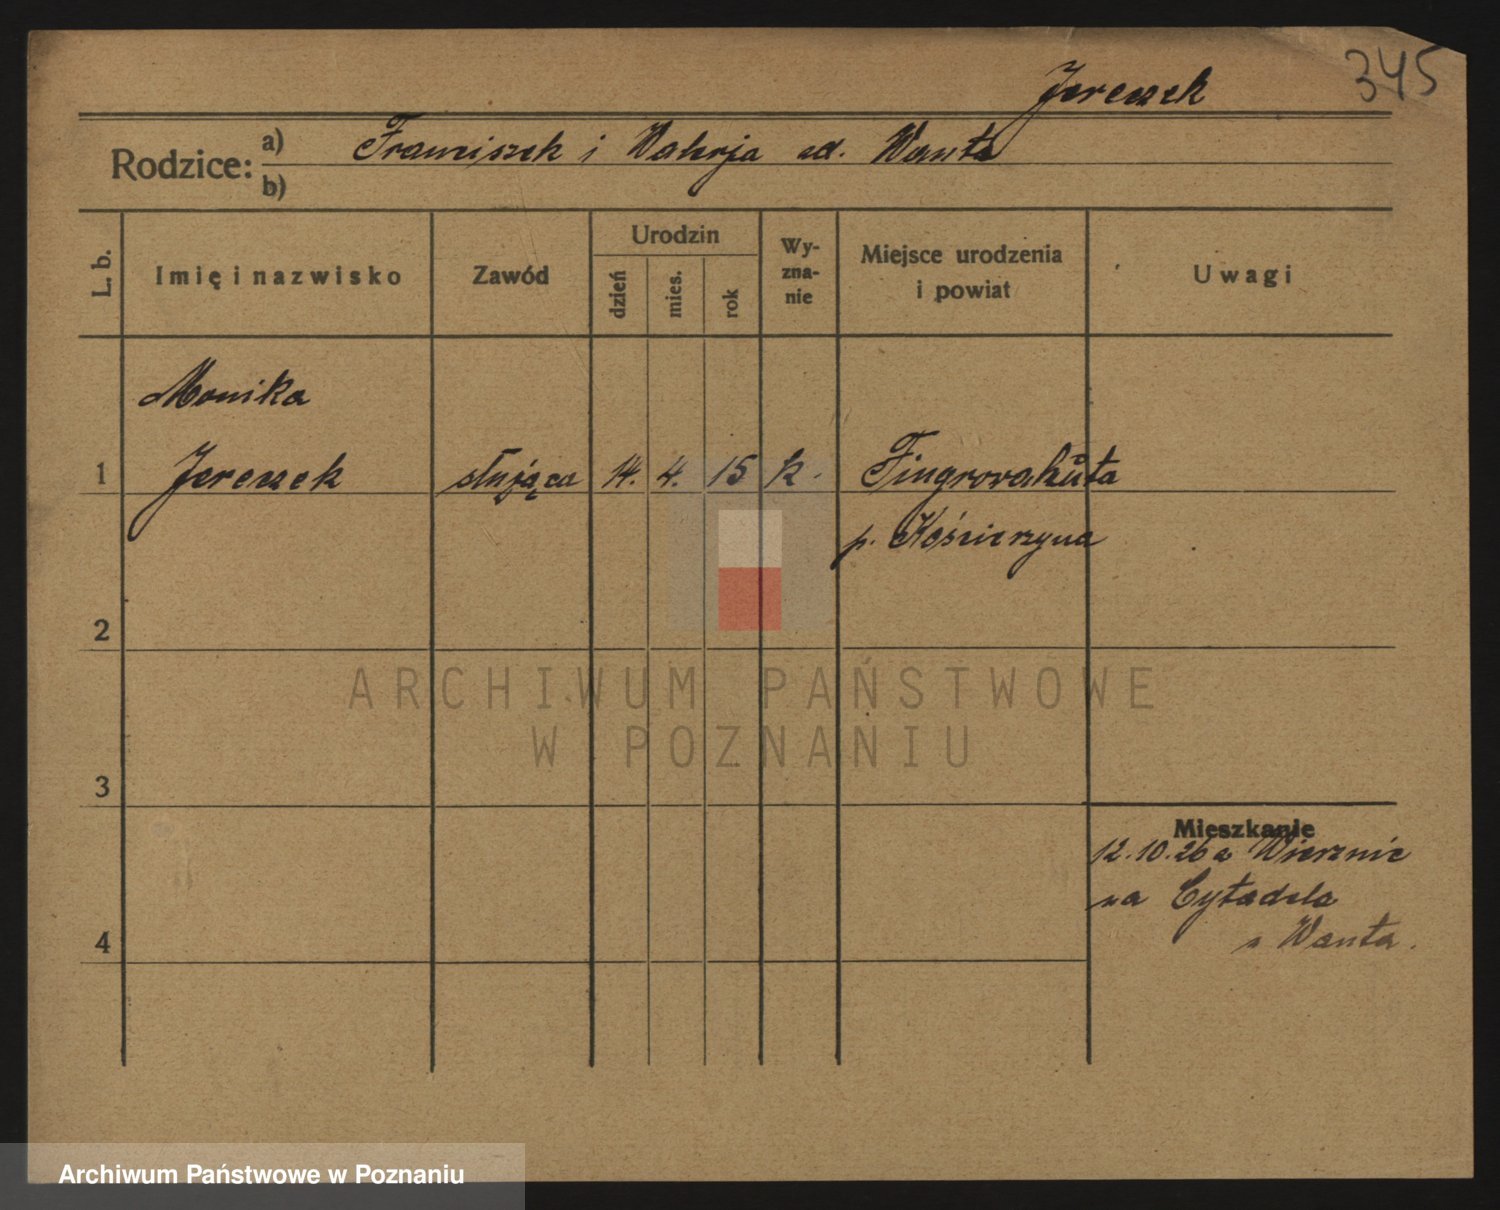 345
Jereczek
Rodzice: a) Franciszek i Walerja zd. Wanta
b)
L. b. Imię i nazwisko Zawód Urodzin dzień mies. rok Wy-zna-nie Miejsce urodzenia i powiat Uwagi
Monika
1 Jereczek służąca 14. 4. 15 k. Fingrovahuta
p. Kościerzyna
2
ARCHIWUM PAŃSTWOWE
W POZNANIU
3
Mieszkanie
12.10.26 z Wierznic
na Cytadela
4
Wanta.
Archiwum Państwowe w Poznaniu